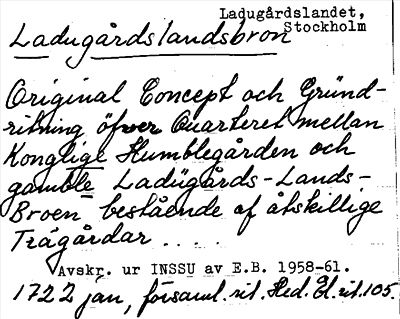 Ladugårdslandet,
Stockholm
Ladugårdslandsbron
Original Concept och Gründ-
ritning öfver Quarteret mellan
Konglige Humblegården och
gamble Ladügårds-Lands-
Broen bestående af åtskillige
Trägårdar . . . . .
Avskr. ur INSSU av E.B. 1958-61.
1722 jan, församl. rit. Hed. El. rit. 105.